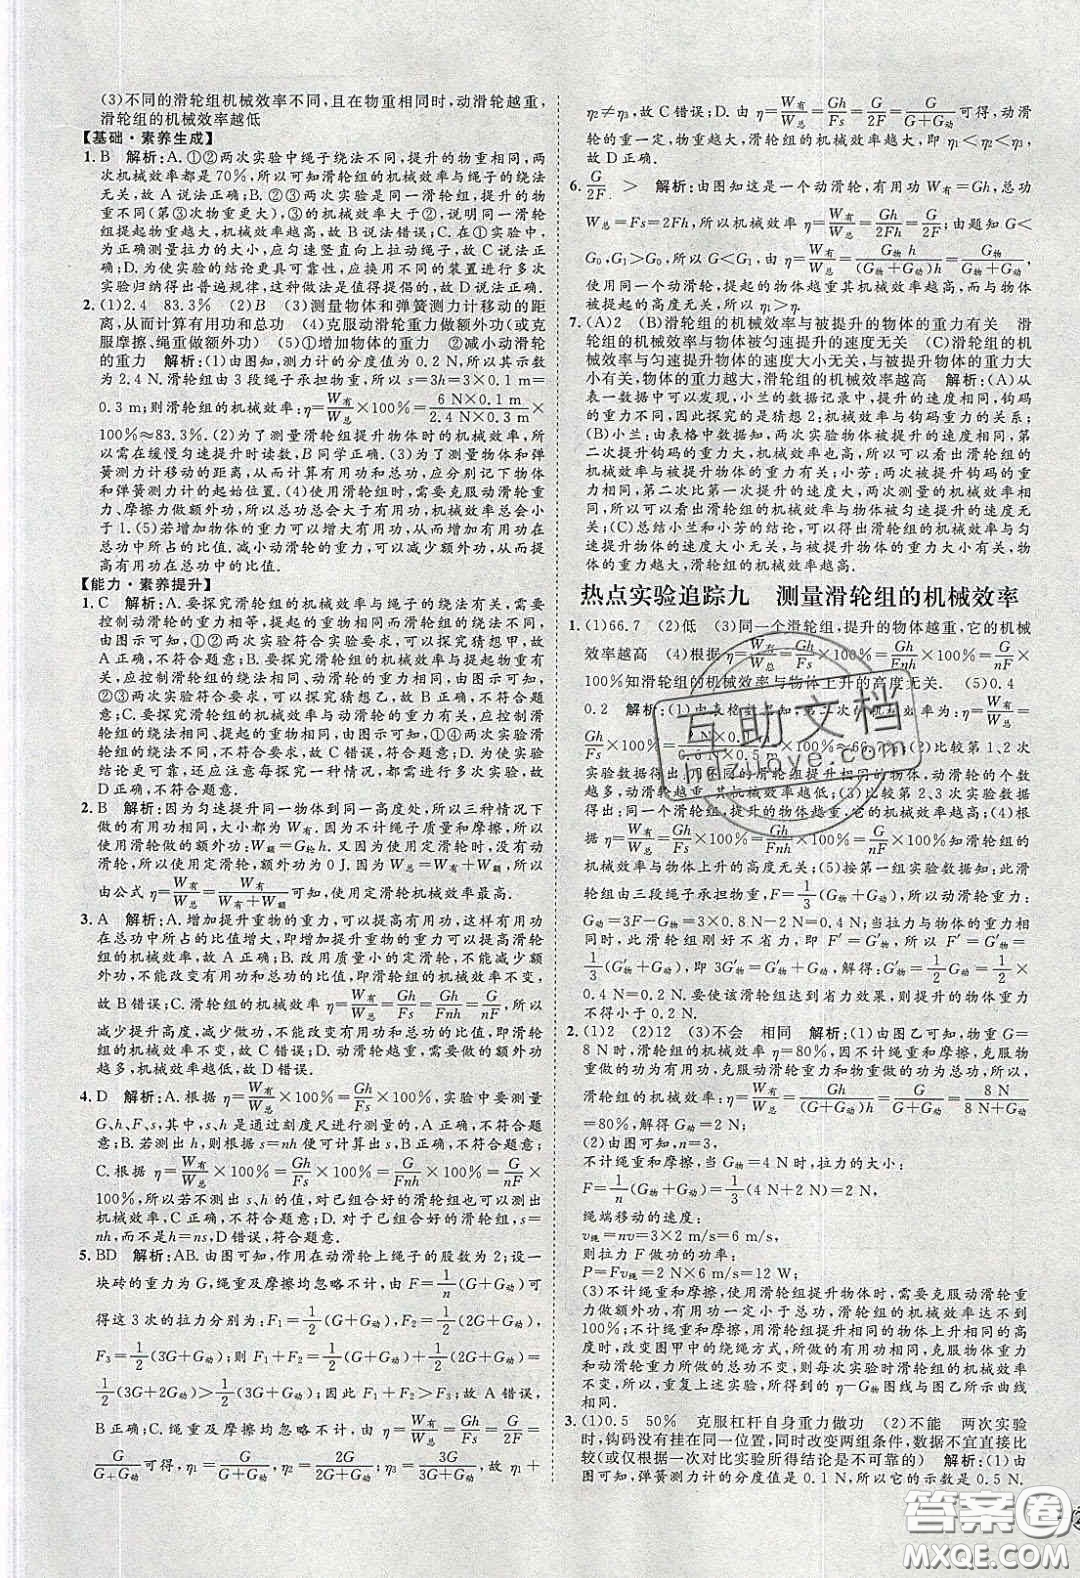 (3)不同的滑轮组机械效率不同,且在物重相同时,动滑轮越重,
滑轮组的机械效率越低
【基础·素养生成】
1. B 解析:A.①②两次实验中绳子绕法不同,提升的物重相同,两
次机械效率都是70%,所以可知滑轮组的机械效率与绳子的绕法
无关,故A说法正确;B.②③两次实验是相同的滑轮组,提升的物
重不同(第③次物重更大),③的机械效率大于②,说明同一滑轮
组提起物重越大,机械效率越高,故B说法错误;C.在①实验中,
为正确测量拉力的大小,应匀速竖直向上拉动绳子,故C说法正
确;D.为使实验的结论更具可靠性,应换用不同的装置进行多次
实验归纳得出普遍规律,这种做法是值得提倡的,故D说法正确.
2. (1)2.4 83.3% (2)B (3)测量物体和弹簧测力计移动的距
离,从而计算有用功和总功 (4)克服动滑轮重力做额外功(或克
服摩擦、绳重做额外功) (5)①增加物体的重力 ②减小动滑轮
的重力 解析:(1)由图知,测力计的分度值为0.2 N,所以其示数
为2.4 N.滑轮组由3段绳子承担物重,所以s=3h=3×0.1 m=
0.3 m;则滑轮组的机械效率:η=W有/W总×100%=6 N×0.1 m/2.4 N×0.3 m×
100%≈83.3%.(2)为了测量滑轮组提升物体时的机械效率,所
以需在缓慢匀速提升时读数,B同学正确.(3)为了测量物体和弹
簧测力计移动的距离,从而计算有用功和总功,应分别记下物体
和弹簧测力计的起始位置.(4)使用滑轮组时,需要克服动滑轮重
力、摩擦力做额外功,所以总功总会大于有用功,机械效率总会小
于1.(5)若增加物体的重力可以增大有用功,从而增大有用功在
总功中所占的比值.减小动滑轮的重力,可以减少额外功,从而提
高有用功在总功中的比值.
【能力·素养提升】
1. C 解析:A.要探究滑轮组的机械效率与绳子的绕法有关,需要
控制动滑轮的重力相等,提起的重物相同而绳子的绕法不同,
由图示可知,①②实验符合实验要求,可以探究猜想甲,故
A正确,不符合题意;B.要探究滑轮组的机械效率与动滑轮重有
关,应控制滑轮的绕法相同、提升重物相同而动滑轮重不同,
②③两次实验符合要求,可以探究猜想乙,故B正确,不符合题
意;C.要探究滑轮组的机械效率与提升重物的重力有关,应控制
滑轮的绕法相同、提升动滑轮重相同而重物不同,①④两次实验
不符合要求,故C错误,符合题意;D.为了使实验
结论更可靠,还需要探究同一种情况,进行多次实验,故
D正确,不符合题意.
2. B 解析:因为匀速提升同一物体到同一高度处,所以三种情况下
做的有用功相同,大小为W有.因为不计绳子质量和摩擦,所以
使用滑轮做的额外功:W额=G轮h.又因为使用定滑轮时,没有动
滑轮,所以使用定滑轮,额外功为0 J.因为W总=W有+W额,所以
由公式η=W有/W总=W有/W有+W额可知,使用定滑轮机械效率最高.
3. A 解析:A.增加提升重物的重力,可以提高有用功,这样有用功
在总功中所占的比值增大,即增加提升物体的重力,可以提高滑轮
组的机械效率,故A正确;B.改用质量小的定滑轮,不能减小额
外功,不能提高有用功和总功的比值,即滑轮组的机械效率不变,
故B错误;C.滑轮组的机械效率η=W有/W总=Gh/Fs=Gh/Fnh=G/nF,所以
减少提升高度,减少做功,不能改变有用功和总功的比值,即滑轮
组的机械效率不变,故C错误;D.动滑轮越重,额外功越大,滑轮
组的机械效率越低,故D错误.
4. D 解析:A.根据η=W有/W总×100%=Gh/Fs×100%,实验中要测量
G、h、F、s,其中h、s是通过刻度尺进行测量的,A正确,不符合题
意;B.若测出h,则根据s=nh便可计算出s,B正确,不符合题意;
C.根据η=W有/W总×100%=Gh/Fs×100%=Gh/Fnh×100%=G/nF×
100%,所以若不测出s、h的值,对已组合好的滑轮组也可以测出
机械效率,故C正确,不符合题意;D.对于已组合好的滑轮组,s=
nh,而不是h=ns,D错误,符合题意.
5. BD 解析:AB.由图可知,作用在动滑轮上绳子的股数为2;设一
块砖的重力为G,绳重及摩擦均忽略不计,由F=1/n(G+G动)可
得这3次的拉力分别为:F₁=1/2(G+G动);F₂=1/2(2G+G动);
F₃=1/2(3G+G动);则F₁+F₂=1/2(G+G动)+1/2(2G+G动)=
1/2(3G+2G动)>1/2(3G+G动);因此F₁+F₂>F₃;故A错误,
B正确;C.绳重及摩擦忽略不计,由η=W有/W总=Gh/Fs=Gh/(G+G动)h=
G/G+G动可得,η₁=G/G+G动;η₂=2G/2G+G动;η₃=3G/3G+G动,故η₁≠
η₂≠η₃,故C错误;D.由η=W有/W总=Gh/Fs=G/2F=G/G+G动可得,动滑
轮的重一定,物重越大,同一滑轮组的机械效率越大,即η₁<η₂<η₃,
故D正确.
6. G/2F > 解析:由图知这是一个动滑轮,有用功W有=Gh,总功
W总=Fs=2Fh,所以机械效率η=W有/W总=Gh/2Fh=G/2F;由题知G<
G₀,G₁>G₀,所以G<G₁,由η=W有/W总=G物h/(G物+G动)h=G物/G物+G动,
使用同一个动滑轮,提升重物越重其机械效率越大,而机械效率
与被提升的高度无关,所以η₁>η.
7. (A)2 (B)滑轮组的机械效率与被提升的物体的重力有关 滑
轮组的机械效率与物体被匀速提升的速度无关 (C)滑轮组的机
械效率与匀速提升的速度大小无关,与被提升的物体的重力大小
有关,物体的重力越大,滑轮组的机械效率越高 解析:(A)从
表一数据中可以发现,小兰的数据记录中,提升的速度相同,钩码
的重力不同,因此探究的是猜想2:机械效率与钩码重力的关系;
(B)小兰:由表格中数据知,两次实验物体被提升的速度相同,第
二次提升钩码重力大,机械效率大,所以可以看出滑轮组的机械
效率与被提升的物体的重力有关;小芳:两次实验提升钩码的重
力相同,第二次比第一次提升的速度大,两次的机械效率相同,所
以可以看出滑轮组的机械效率与物体被匀速提升的速度大小无
关;(C)总结小兰和小芳的结论,可以得出滑轮组的机械效率与匀
速提升的速度大小无关;与被提升物体的重力有关,重力越大,机
械效率越高.
热点实验追踪九 测量滑轮组的机械效率
1. (1)66.7 (2)低 (3)同一个滑轮组,提升的物体越重,它的机械
效率越高 (4)根据η=W有/W总×100%=Gh/Fs×100%=Gh/Fnh×100%=G/nF
×100%知滑轮组的机械效率与物体上升的高度无关. (5)0.4
0.2
Gh/Fs×100%
(2)比较第1、2次
η=W有/W总×100%=Gh/Fs×100%=Gh/Fnh×100%=G/nF×100%知滑轮组
的机械效率与物体上升的高度无关;(5)按第一组实验数据,此滑
轮组由三段绳子承担物重,F=1/3(G物+G动),所以动滑轮的重力:
G动=3F-G物=3×0.8 N-2 N=0.4 N;当拉力与物体的重力相
同时,此滑轮组刚好不省力,即F′=G′物,所以F′=G′物=
1/3(G′物+G动),即3G′物=G′物+G动,解得:G′物=1/2G动=1/2×
0.4 N=0.2 N.要使该滑轮组达到省力效果,则提升的物体重力
不得小于0.2 N.
2. (1)2 (2)12 (3)不会 相同 解析:(1)由图乙可知,物重G=
8 N时,滑轮组的机械效率η=80%,因不计绳重和摩擦,克服物
重做的功为有用功,克服物重和动滑轮重所做的功为总功,所以,
滑轮组的机械效率:η=W有/W总=Gh/(G+G动)h=G/G+G动=8 N/8 N+G动=
80%,解得G动=2 N;
(2)由图可知,n=3,
不计绳重和摩擦,当G物=4 N时,拉力的大小:
F=1/n(G物+G动)=1/3(4 N+2 N)=2 N,
绳端移动的速度:
v绳=nv=3×2 m/s=6 m/s,
则拉力F做功的功率:
P=Fv绳=2 N×6 m/s=12 W;
(3)不计绳重和摩擦,使用滑轮组提升物体时,需要克服动滑轮重
力做额外功,有用功一定小于总功,滑轮组的机械效率达不到
100%;不计绳重和摩擦,用滑轮组提升相同的物体上升相同的高
度时,改变图甲中的绕绳方式,因物体重力所做的有用功不变、动
滑轮重力所做的总功不变,则每次实验时滑轮组的机械效率不
变,所以,重复上述实验,最后得到的η-G物图线与图乙所示曲线
相同.
3. (1)0.5 50% 克服杠杆自身重力做功 (2)不能 两次实验
时,钩码没有挂在同一位置,同时改变两组条件,数据不宜直接比
比较(或仅根据一次对比实验所得结论是不可靠的) 解析:(1)由
图可知,弹簧测力计的分度值是0.1 N,所以它的示数是0.5 N.
互助文档
huzulove.com
答案圈
MXQE.COM